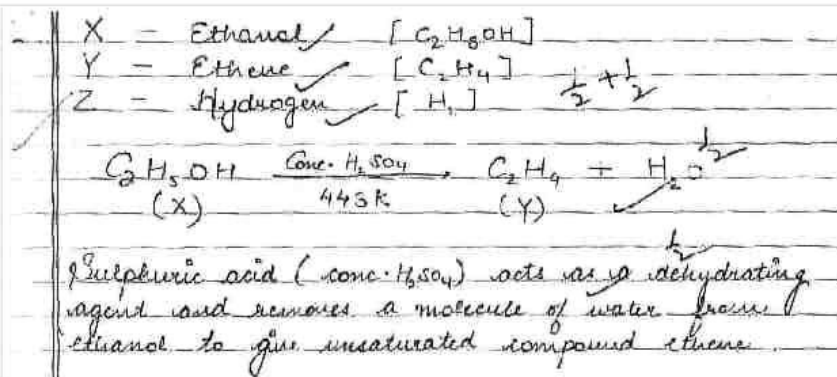 X - Ethanol [C₂H₅OH]
Y - Ethene [C₂H₄]
Z - Hydrogen [H₂] ½ + ½
½
C₂H₅OH Conc. H₂SO₄ 443K → C₂H₄ + H₂O
(X) (Y)
½
Sulphuric acid (conc. H₂SO₄) acts as a dehydrating
agent and removes a molecule of water from
ethanol to give unsaturated compound ethene.